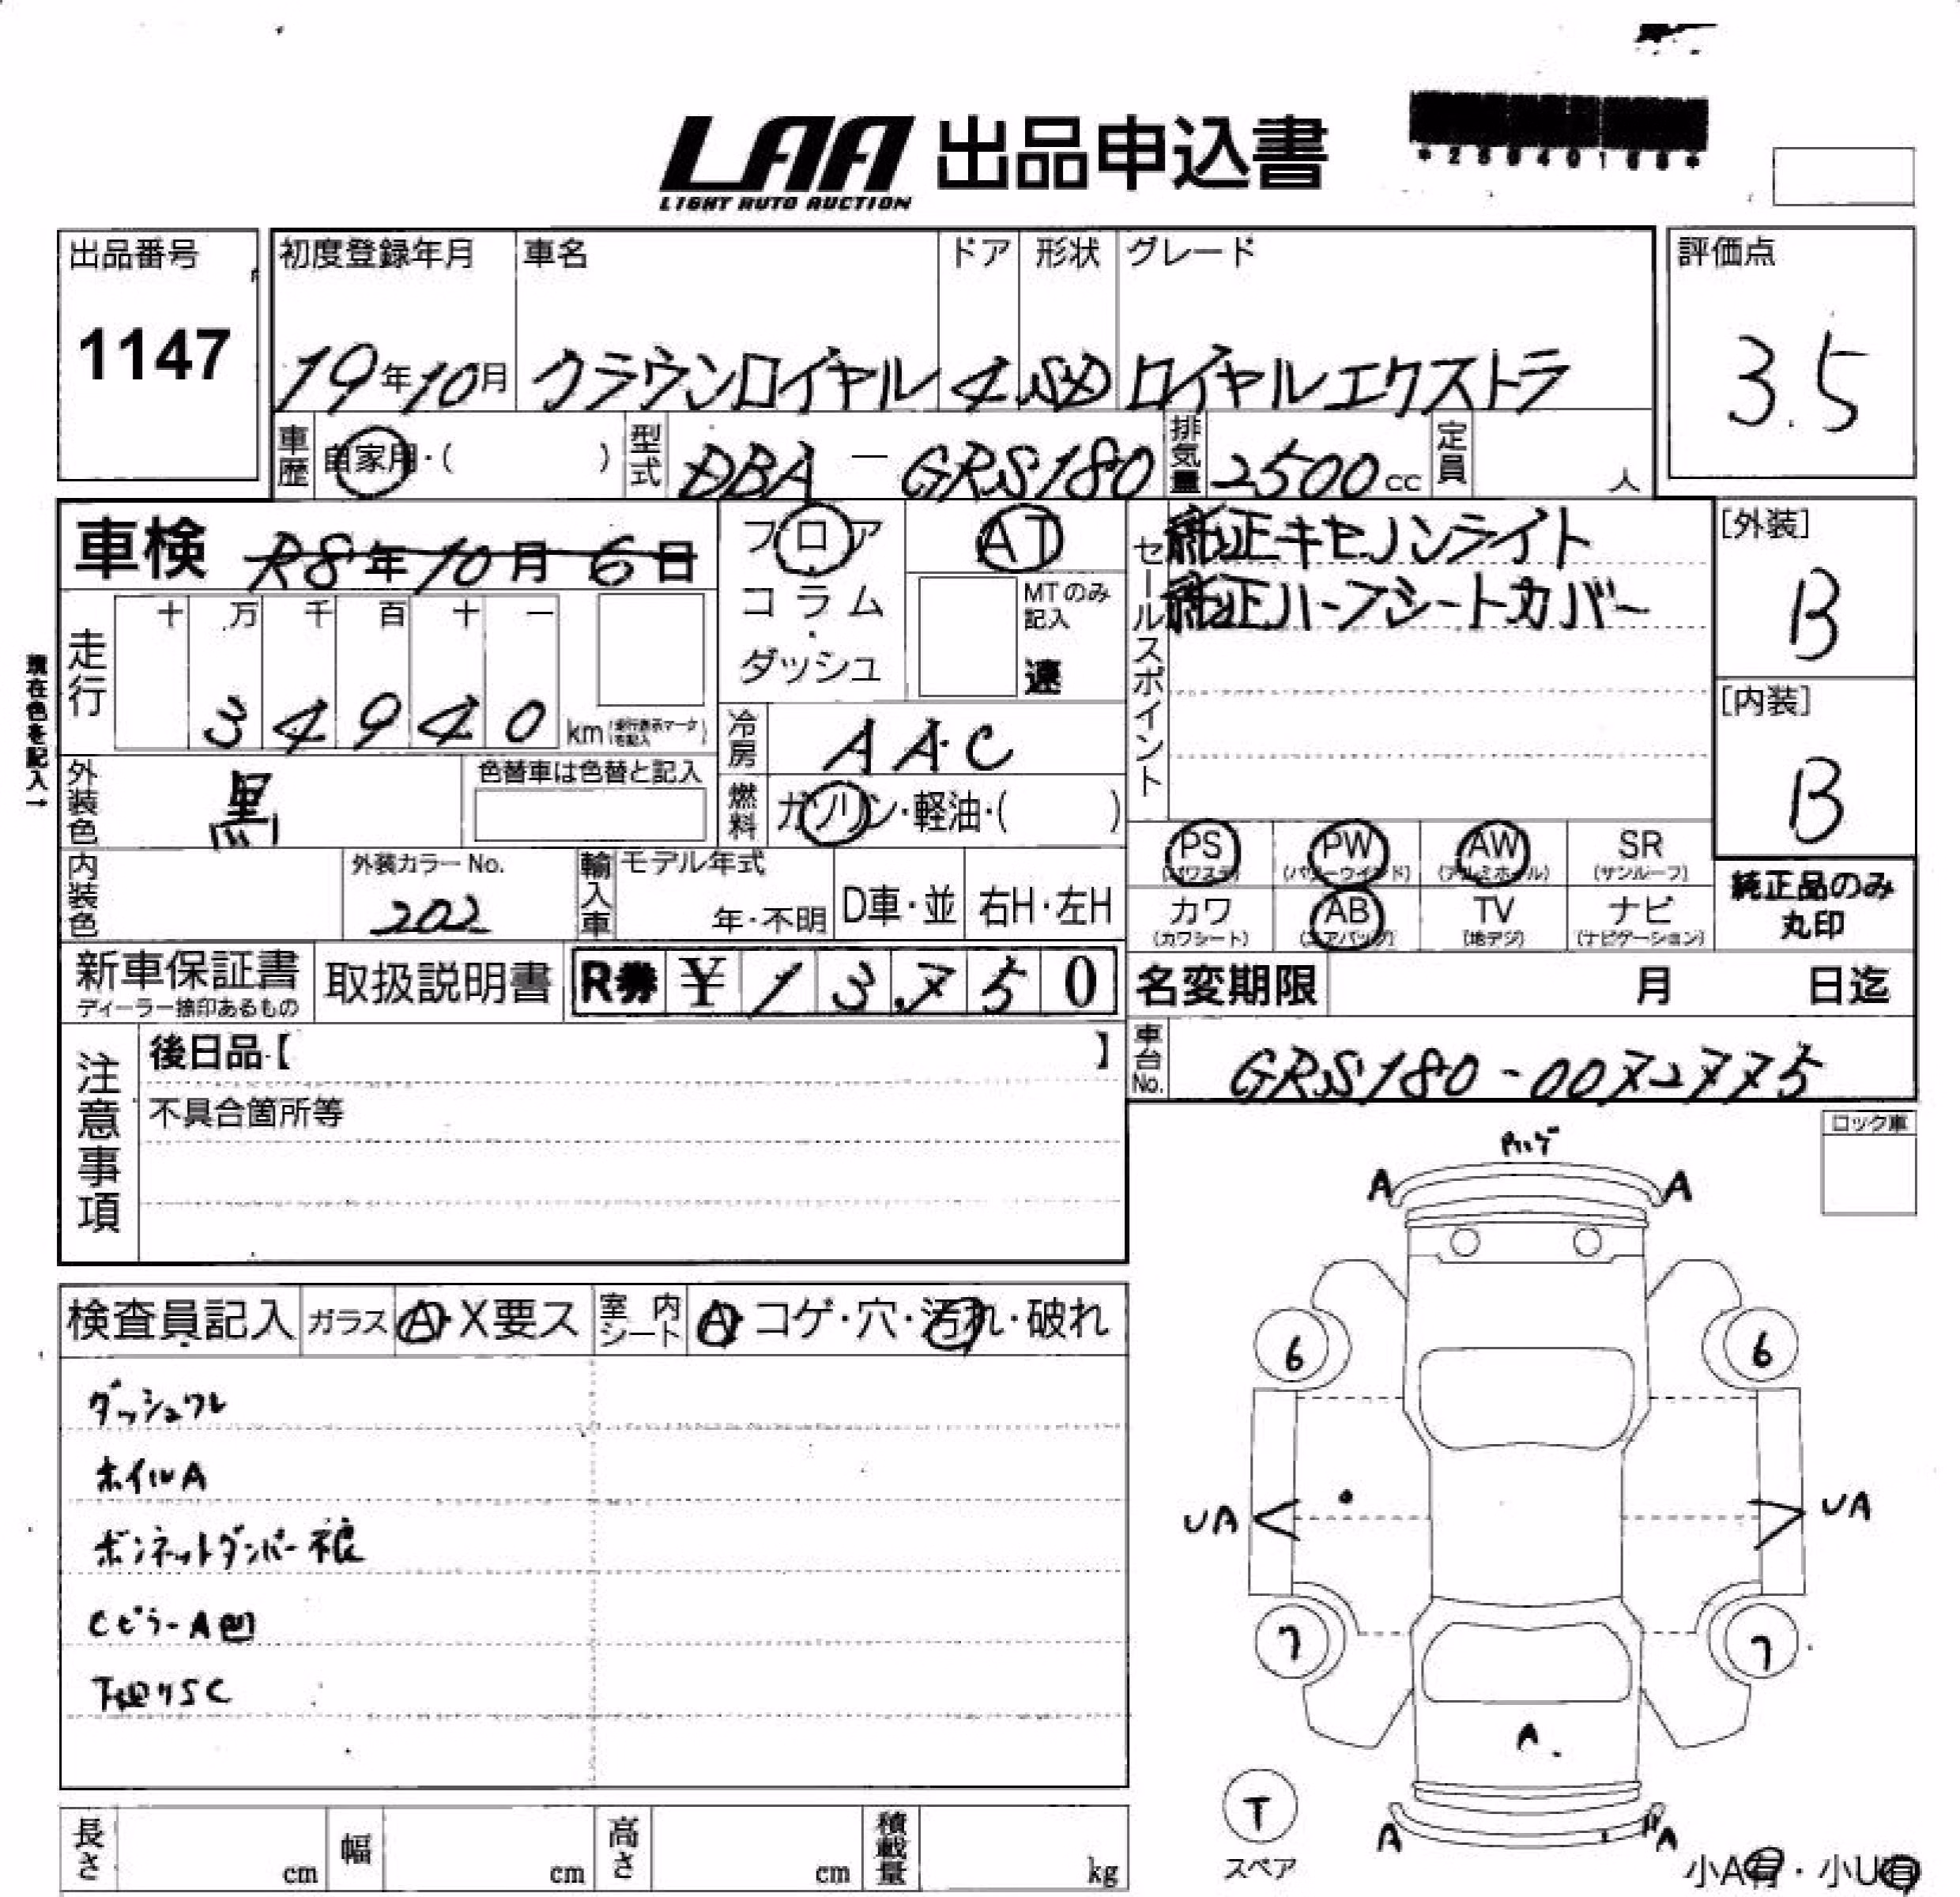 LAA 出品申込書
LIGHT AUTO AUCTION
出品番号
1147
初度登録年月
19年10月
車名
クラウンロイヤル
ドア
4
形状
SD
グレード
ロイヤルエクストラ
評価点
3.5
車歴
自家用・( )
型式
DBA-GRS180
排気量
2500cc
定員
人
車検 R8年10月6日
フロア
コラム
・
ダッシュ
AT
MTのみ
記入
速
セールスポイント
純正キセノンライト
純正ハーフシートカバー
[外装]
B
[内装]
B
走行
十 万 千 百 十 一
3 4 9 4 0 km
現在色を記入→
冷房
AAC
外装色
黒
色替車は色替と記入
燃料
ガソリン・軽油・( )
PS
PW
AW
SR
(サンルーフ)
カワ
(カワシート)
AB
TV
(地デジ)
ナビ
(ナビゲーション)
純正品のみ
丸印
内装色
外装カラーNo.
202
輸入車
モデル年式
年・不明
D車・並
右H・左H
新車保証書
ディーラー捺印あるもの
取扱説明書
R券 ¥ 13,750
名変期限
月 日迄
車台No.
GRS180-0072775
注意事項
後日品【 】
不具合箇所等
ロック車
検査員記入
ガラス
A・X要ス
室内シート
A・コゲ・穴・汚れ・破れ
ダッシュワレ
ホイルA
ボンネットダンパー不良
CピラーA凹
下廻りSC
A
A
6
6
UA
UA
7
7
A
T
スペア
A
A
小A有・小U有
長さ
cm
幅
cm
高さ
cm
積載量
kg